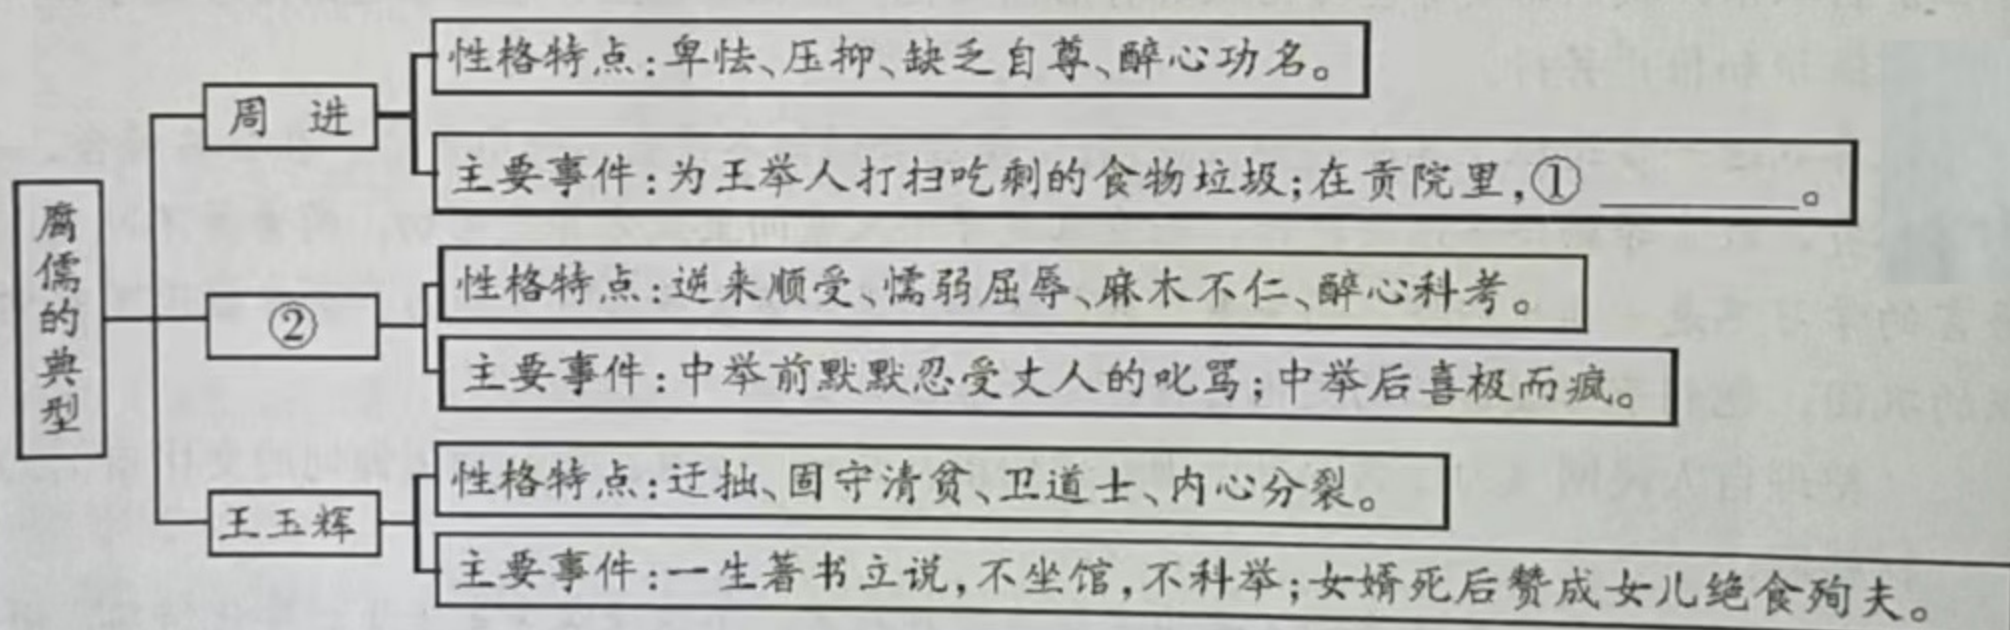 腐儒的典型
周进
性格特点:卑怯、压抑、缺乏自尊、醉心功名。
主要事件:为王举人打扫吃剩的食物垃圾;在贡院里,①________。
②
性格特点:逆来顺受、懦弱屈辱、麻木不仁、醉心科考。
主要事件:中举前默默忍受丈人的叱骂;中举后喜极而疯。
王玉辉
性格特点:迂拙、固守清贫、卫道士、内心分裂。
主要事件:一生著书立说,不坐馆,不科举;女婿死后赞成女儿绝食殉夫。